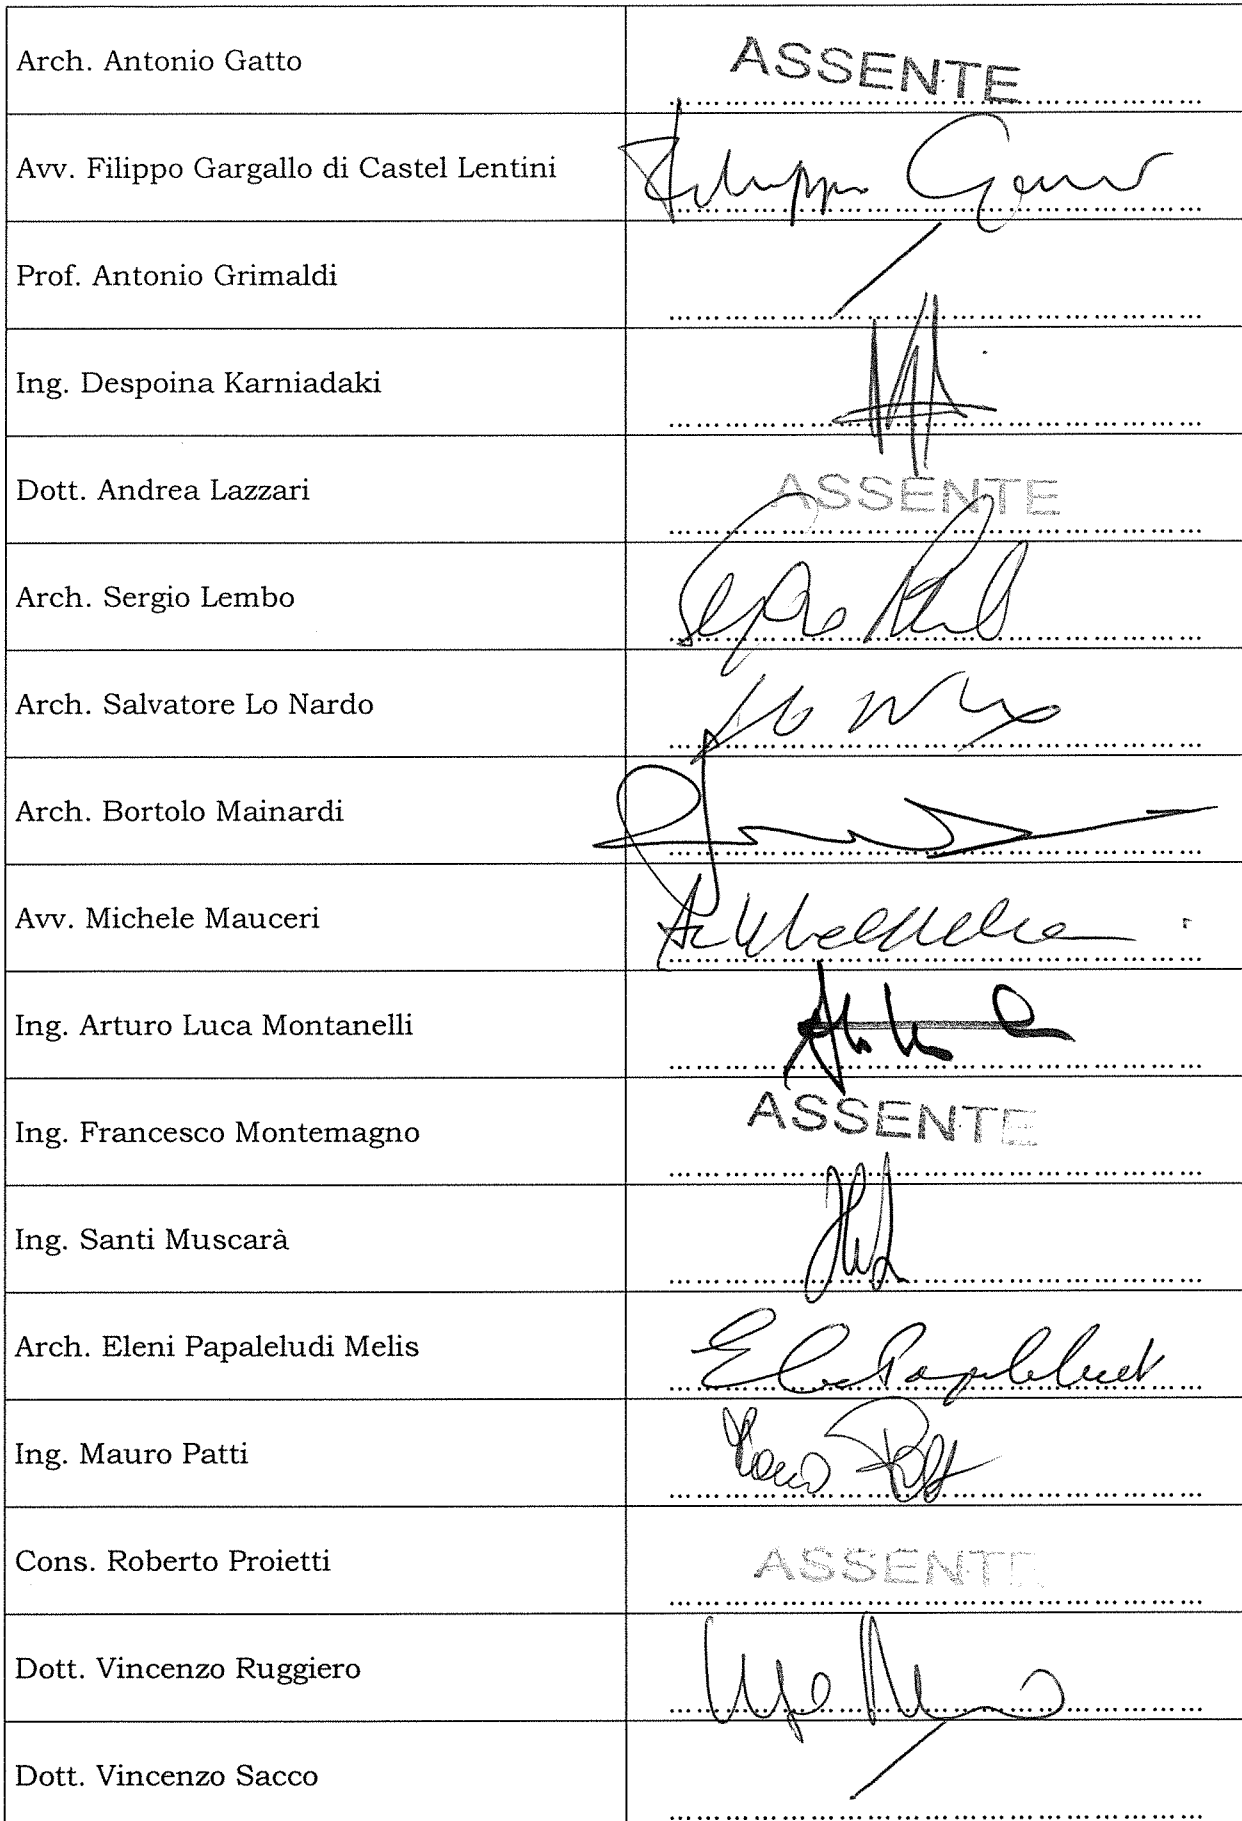 Arch. Antonio Gatto ASSENTE
Avv. Filippo Gargallo di Castel Lentini Filippo
Prof. Antonio Grimaldi
Ing. Despoina Karniadaki
Dott. Andrea Lazzari ASSENTE
Arch. Sergio Lembo
Arch. Salvatore Lo Nardo
Arch. Bortolo Mainardi
Avv. Michele Mauceri
Ing. Arturo Luca Montanelli
Ing. Francesco Montemagno ASSENTE
Ing. Santi Muscarà
Arch. Eleni Papaleludi Melis
Ing. Mauro Patti
Cons. Roberto Proietti ASSENTE
Dott. Vincenzo Ruggiero
Dott. Vincenzo Sacco